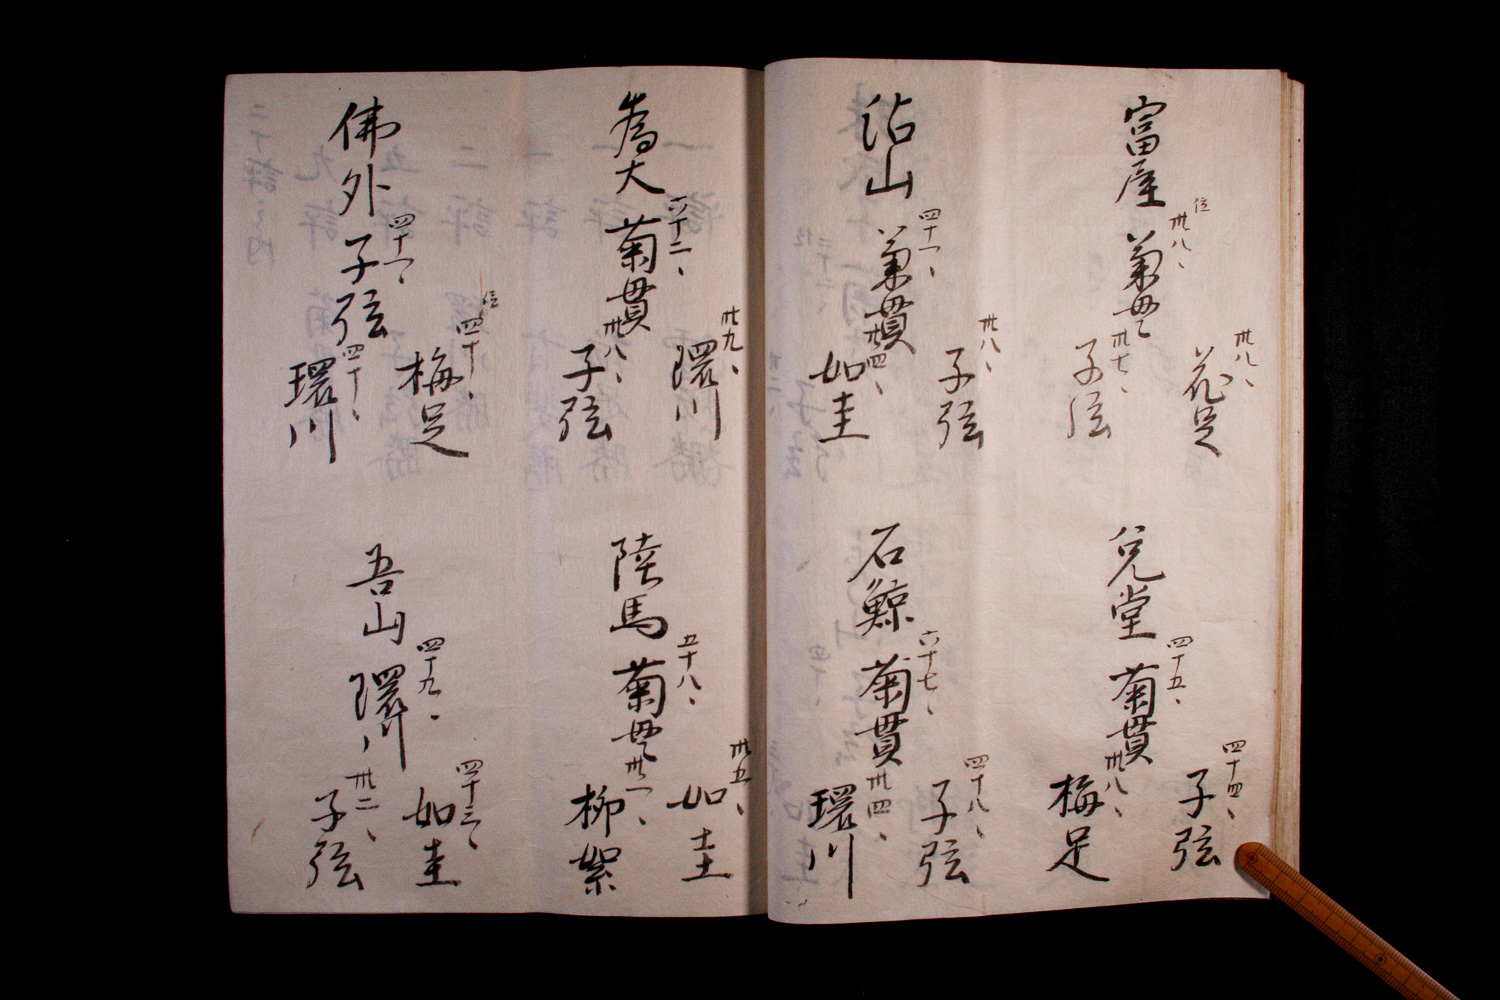 富屋
位
卅八、
菊貫
卅八、
花足
卅七、
子弦
兌堂
四十五、
菊貫
四十四、
子弦
卅八、
梅足
沾山
四十一、
菊貫
卅八、
子弦
卅四、
如圭
石鯨
六十七、
菊貫
四十八、
子弦
卅四、
環川
喬大
四十二、
菊貫
卅九、
環川
卅八、
子弦
陸馬
五十八、
菊貫
卅五、
如圭
卅一、
柳絮
佛外
四十一、
子弦
位
四十、
梅足
四十、
環川
吾山
四十九、
環川
四十三、
如圭
卅二、
子弦